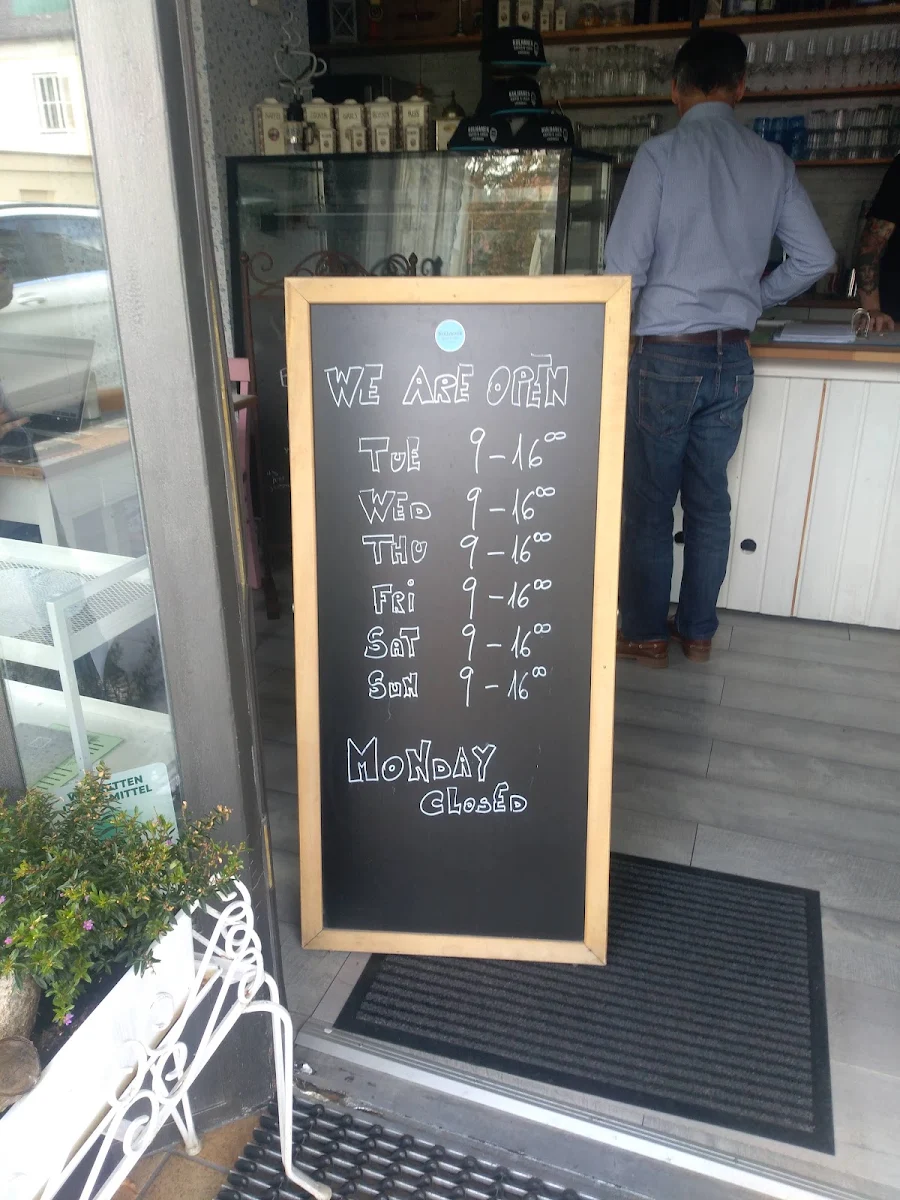 WE ARE OPEN
TUE 9-16⁰⁰
WED 9-16⁰⁰
THU 9-16⁰⁰
FRi 9-16⁰⁰
SAT 9-16⁰⁰
SUN 9-16⁰⁰
MONDAY
CLOSED